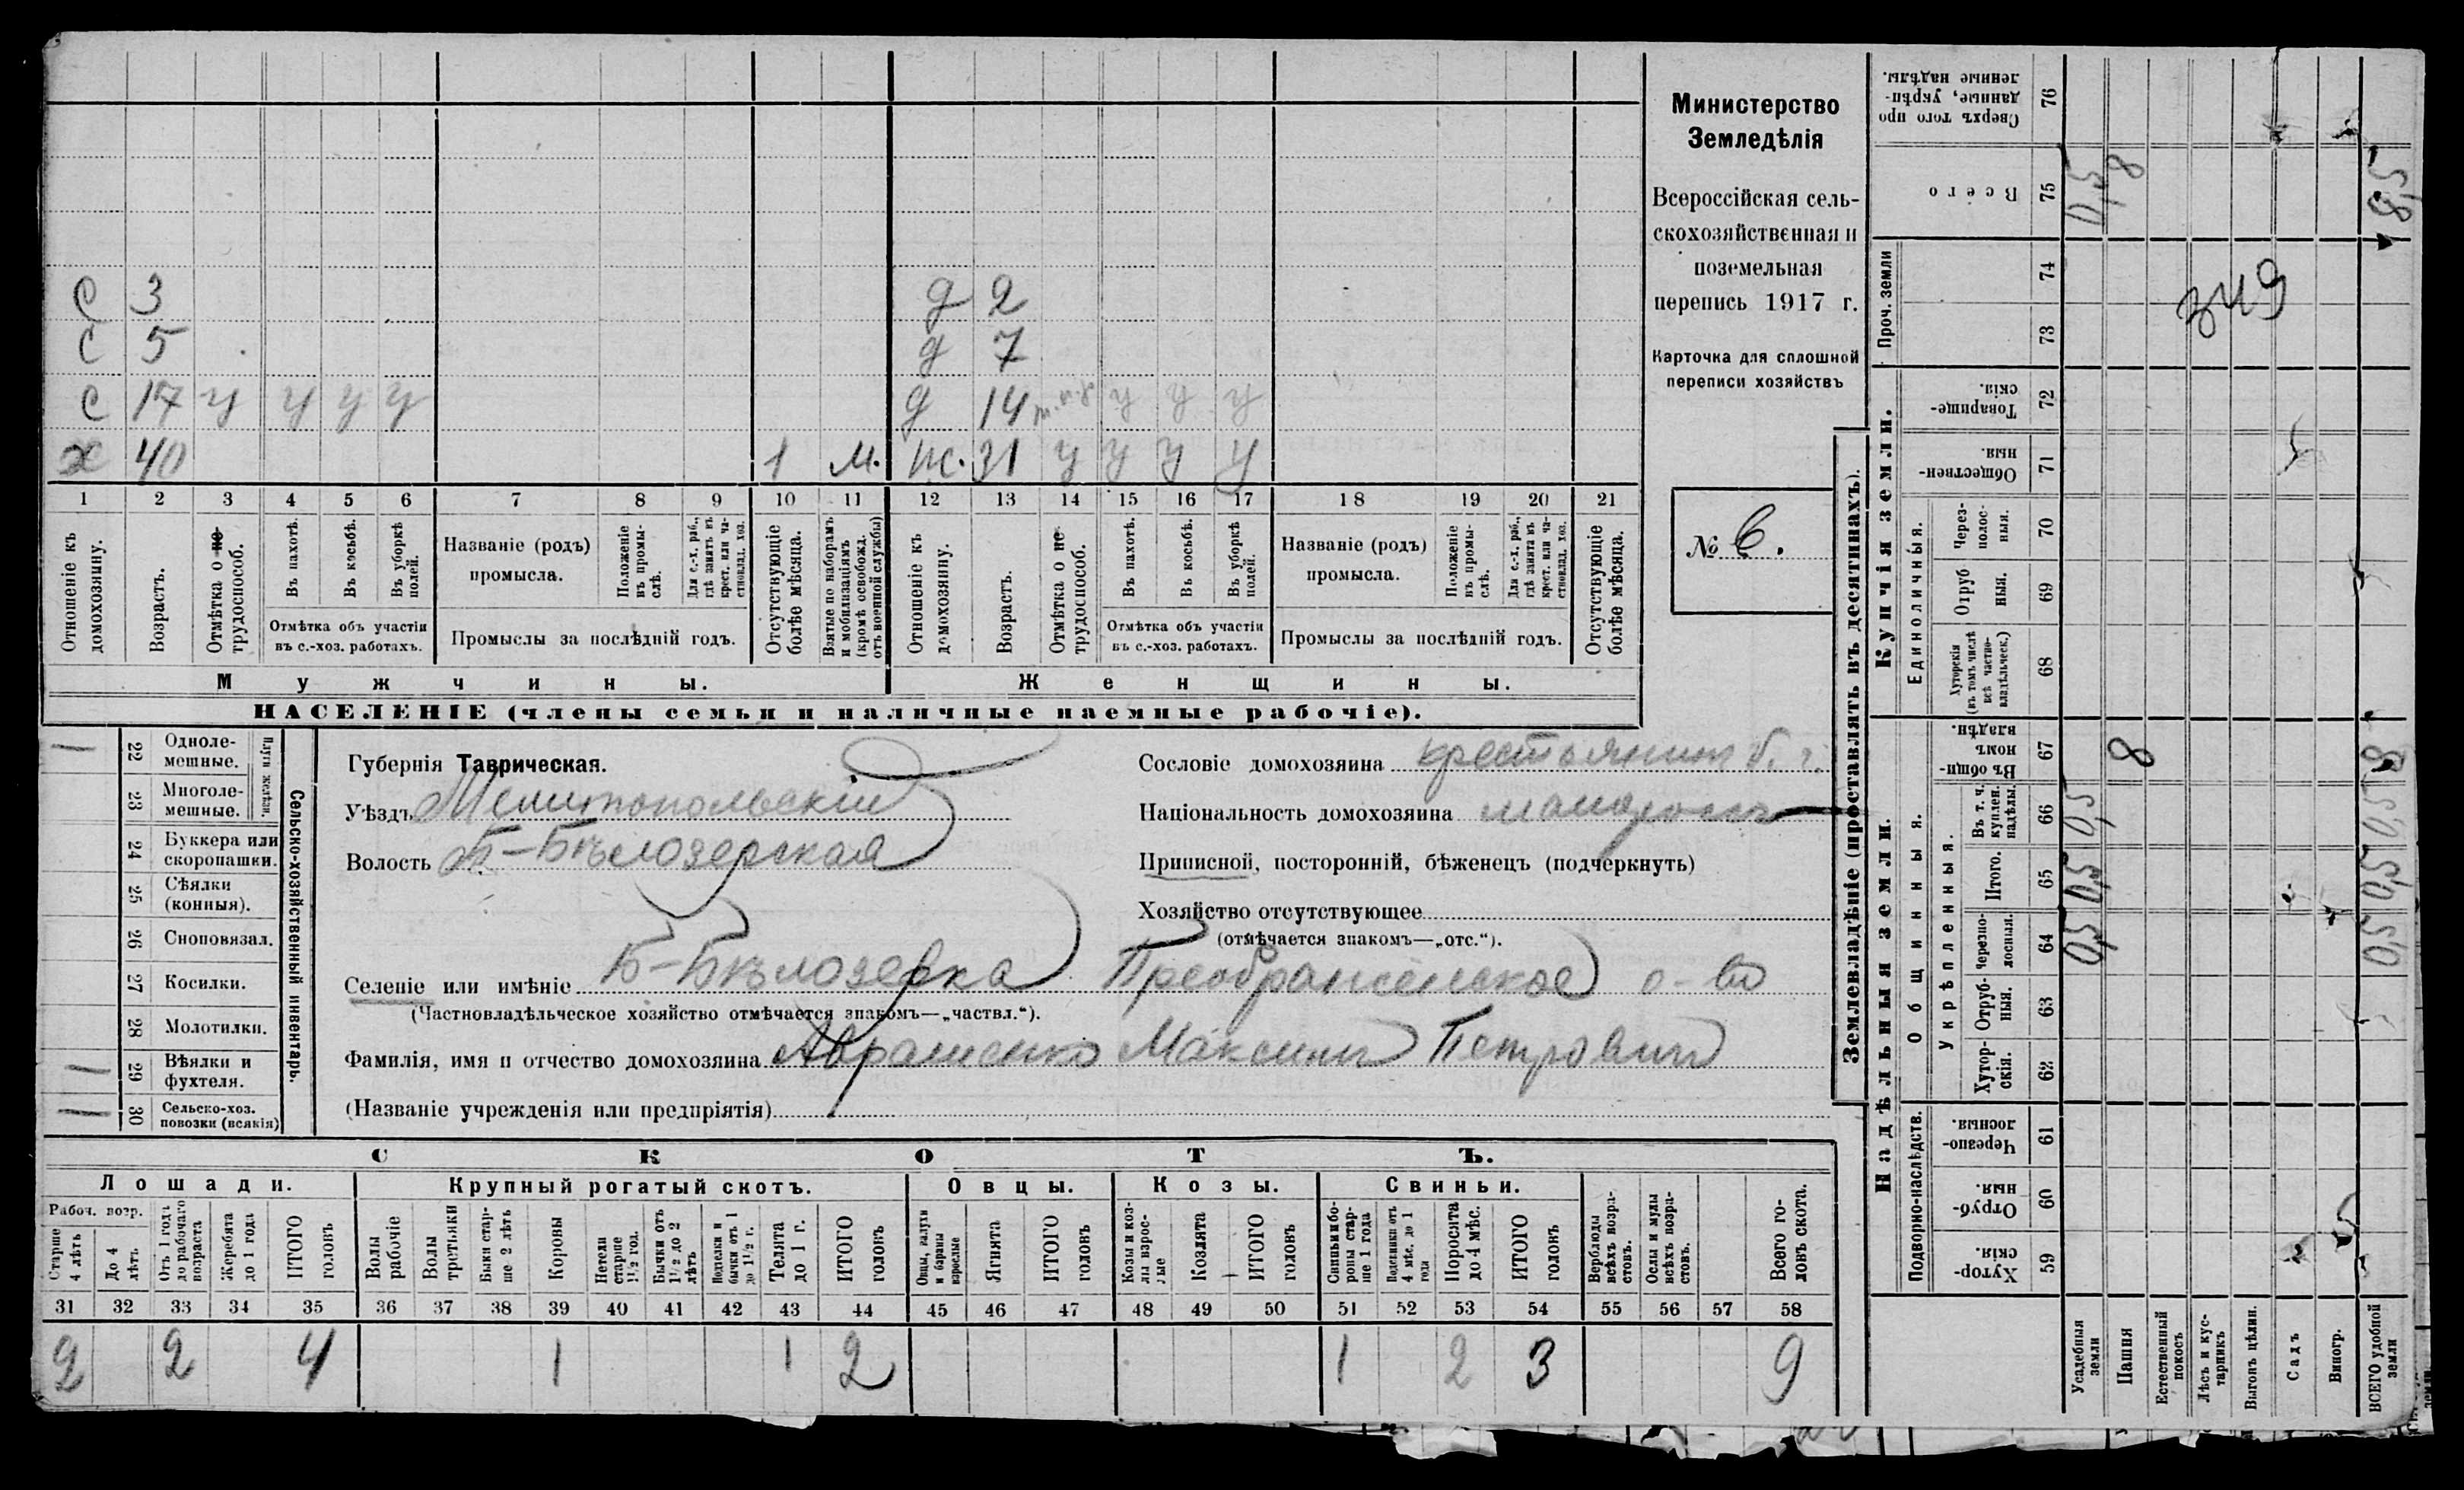 С 3 д 2
С 5 д 7
С 17 у у у у д 14 у у у
х 40 1 м. ж. 31 у у у у
1 2 3 4 5 6 7 8 9 10 11 12 13 14 15 16 17 18 19 20 21
Отношеніе къ домохозяину.
Возрастъ.
Отмѣтка о не трудоспособ.
Въ пахотѣ.
Въ косьбѣ.
Въ уборкѣ полей.
Отмѣтка объ участіи въ с.-хоз. работахъ.
Названіе (родъ) промысла.
Положеніе въ промыслѣ.
Для с.-х. раб., гдѣ занятъ въ крест. или частновлад. хоз.
Промыслы за послѣдній годъ.
Отсутствующіе болѣе мѣсяца.
Взятые по наборамъ и мобилизаціямъ (кромѣ освобожд. отъ военной службы)
Отношеніе къ домохозяину.
Возрастъ.
Отмѣтка о не трудоспособ.
Въ пахотѣ.
Въ косьбѣ.
Въ уборкѣ полей.
Отмѣтка объ участіи въ с.-хоз. работахъ.
Названіе (родъ) промысла.
Положеніе въ промыслѣ.
Для с.-х. раб., гдѣ занята въ крест. или частновлад. хоз.
Промыслы за послѣдній годъ.
Отсутствующіе болѣе мѣсяца.
Мужчины. Женщины.
НАСЕЛЕНІЕ (члены семьи и наличные наемные рабочіе).
Министерство
Земледѣлія
Всероссійская сель-
скохозяйственная и
поземельная
перепись 1917 г.
Карточка для сплошной
переписи хозяйствъ
№ 6.
Сельско-хозяйственный инвентарь.
Плуги желѣзн.
22 Одноле-
мешные.
23 Многоле-
мешные.
24 Буккера или
скоропашки.
25 Сѣялки
(конныя).
26 Сноповязал.
27 Косилки.
28 Молотилки.
29 Вѣялки и
фухтеля.
30 Сельско-хоз.
повозки (всякія)
Губернія Таврическая.
Уѣздъ Мелитопольскій
Волость Б-Бѣлозерская
Селеніе или имѣніе Б-Бѣлозерка Преображенское о-во
(Частновладѣльческое хозяйство отмѣчается знакомъ—„частвл.“).
Фамилія, имя и отчество домохозяина Авраменко Максимъ Петровичъ
(Названіе учрежденія или предпріятія)
Сословіе домохозяина крестьянинъ б. г.
Національность домохозяина малороссъ
Приписной, посторонній, бѣженецъ (подчеркнуть)
Хозяйство отсутствующее
(отмѣчается знакомъ—„отс.“).
СКОТЪ.
Лошади. Крупный рогатый скотъ. Овцы. Козы. Свиньи.
Рабоч. возр.
Старше 4 лѣтъ
До 4 лѣтъ
Отъ 1 года до рабочаго возраста
Жеребята до 1 года
ИТОГО головъ
Волы рабочіе
Волы третьяки
Быки старше 2 лѣтъ
Коровы
Нетели старше 1½ год.
Бычки отъ 1½ до 2 лѣтъ
Телята до 1 г.
ИТОГО головъ
Ягнята
ИТОГО головъ
Козы и козлы взрослые
Козлята
ИТОГО головъ
Свиньи и боровы старше 1 года
Поросята до 4 мѣс.
ИТОГО головъ
Верблюды всѣхъ возрастовъ.
Ослы и мулы всѣхъ возрастовъ.
Всего головъ скота.
31 32 33 34 35 36 37 38 39 40 41 42 43 44 45 46 47 48 49 50 51 52 53 54 55 56 57 58
2 2 4 1 1 2 1 2 3 9
Землевладѣніе (проставлять въ десятинахъ).
Надѣльныя земли. Купчія земли. Проч. земли
Подворно-наслѣдств.
Общинныя.
Укрѣпленныя.
Единоличныя.
59 Хутор-
скія.
60 Отруб-
ныя.
61 Черезпо-
лосныя.
62 Хутор-
скія.
63 Отруб-
ныя.
64 Черезпо-
лосныя.
65 Итого.
66 Въ т. ч. куплен. надѣлы.
67 Въ общин-
номъ
владѣн.
68 Хуторскія (въ томъ числѣ всѣ частно-владѣльческ.)
69 Отруб
ныя.
70 Через-
полос-
ныя.
71 Обществен-
ныя.
72 Товарище-
скія.
73
74
75 Всего
76 Сверхъ того про
данные, укрѣп-
ленные надѣлы.
Усадебныя земли 0,5 0,5 0,5 0,5
Пашня 8 8
Естественный покосъ
Лѣсъ и кустарникъ
Выгонъ цѣлин.
Садъ
Виногр.
ВСЕГО удобной земли 0,5 0,5 0,5 8 8,5
349